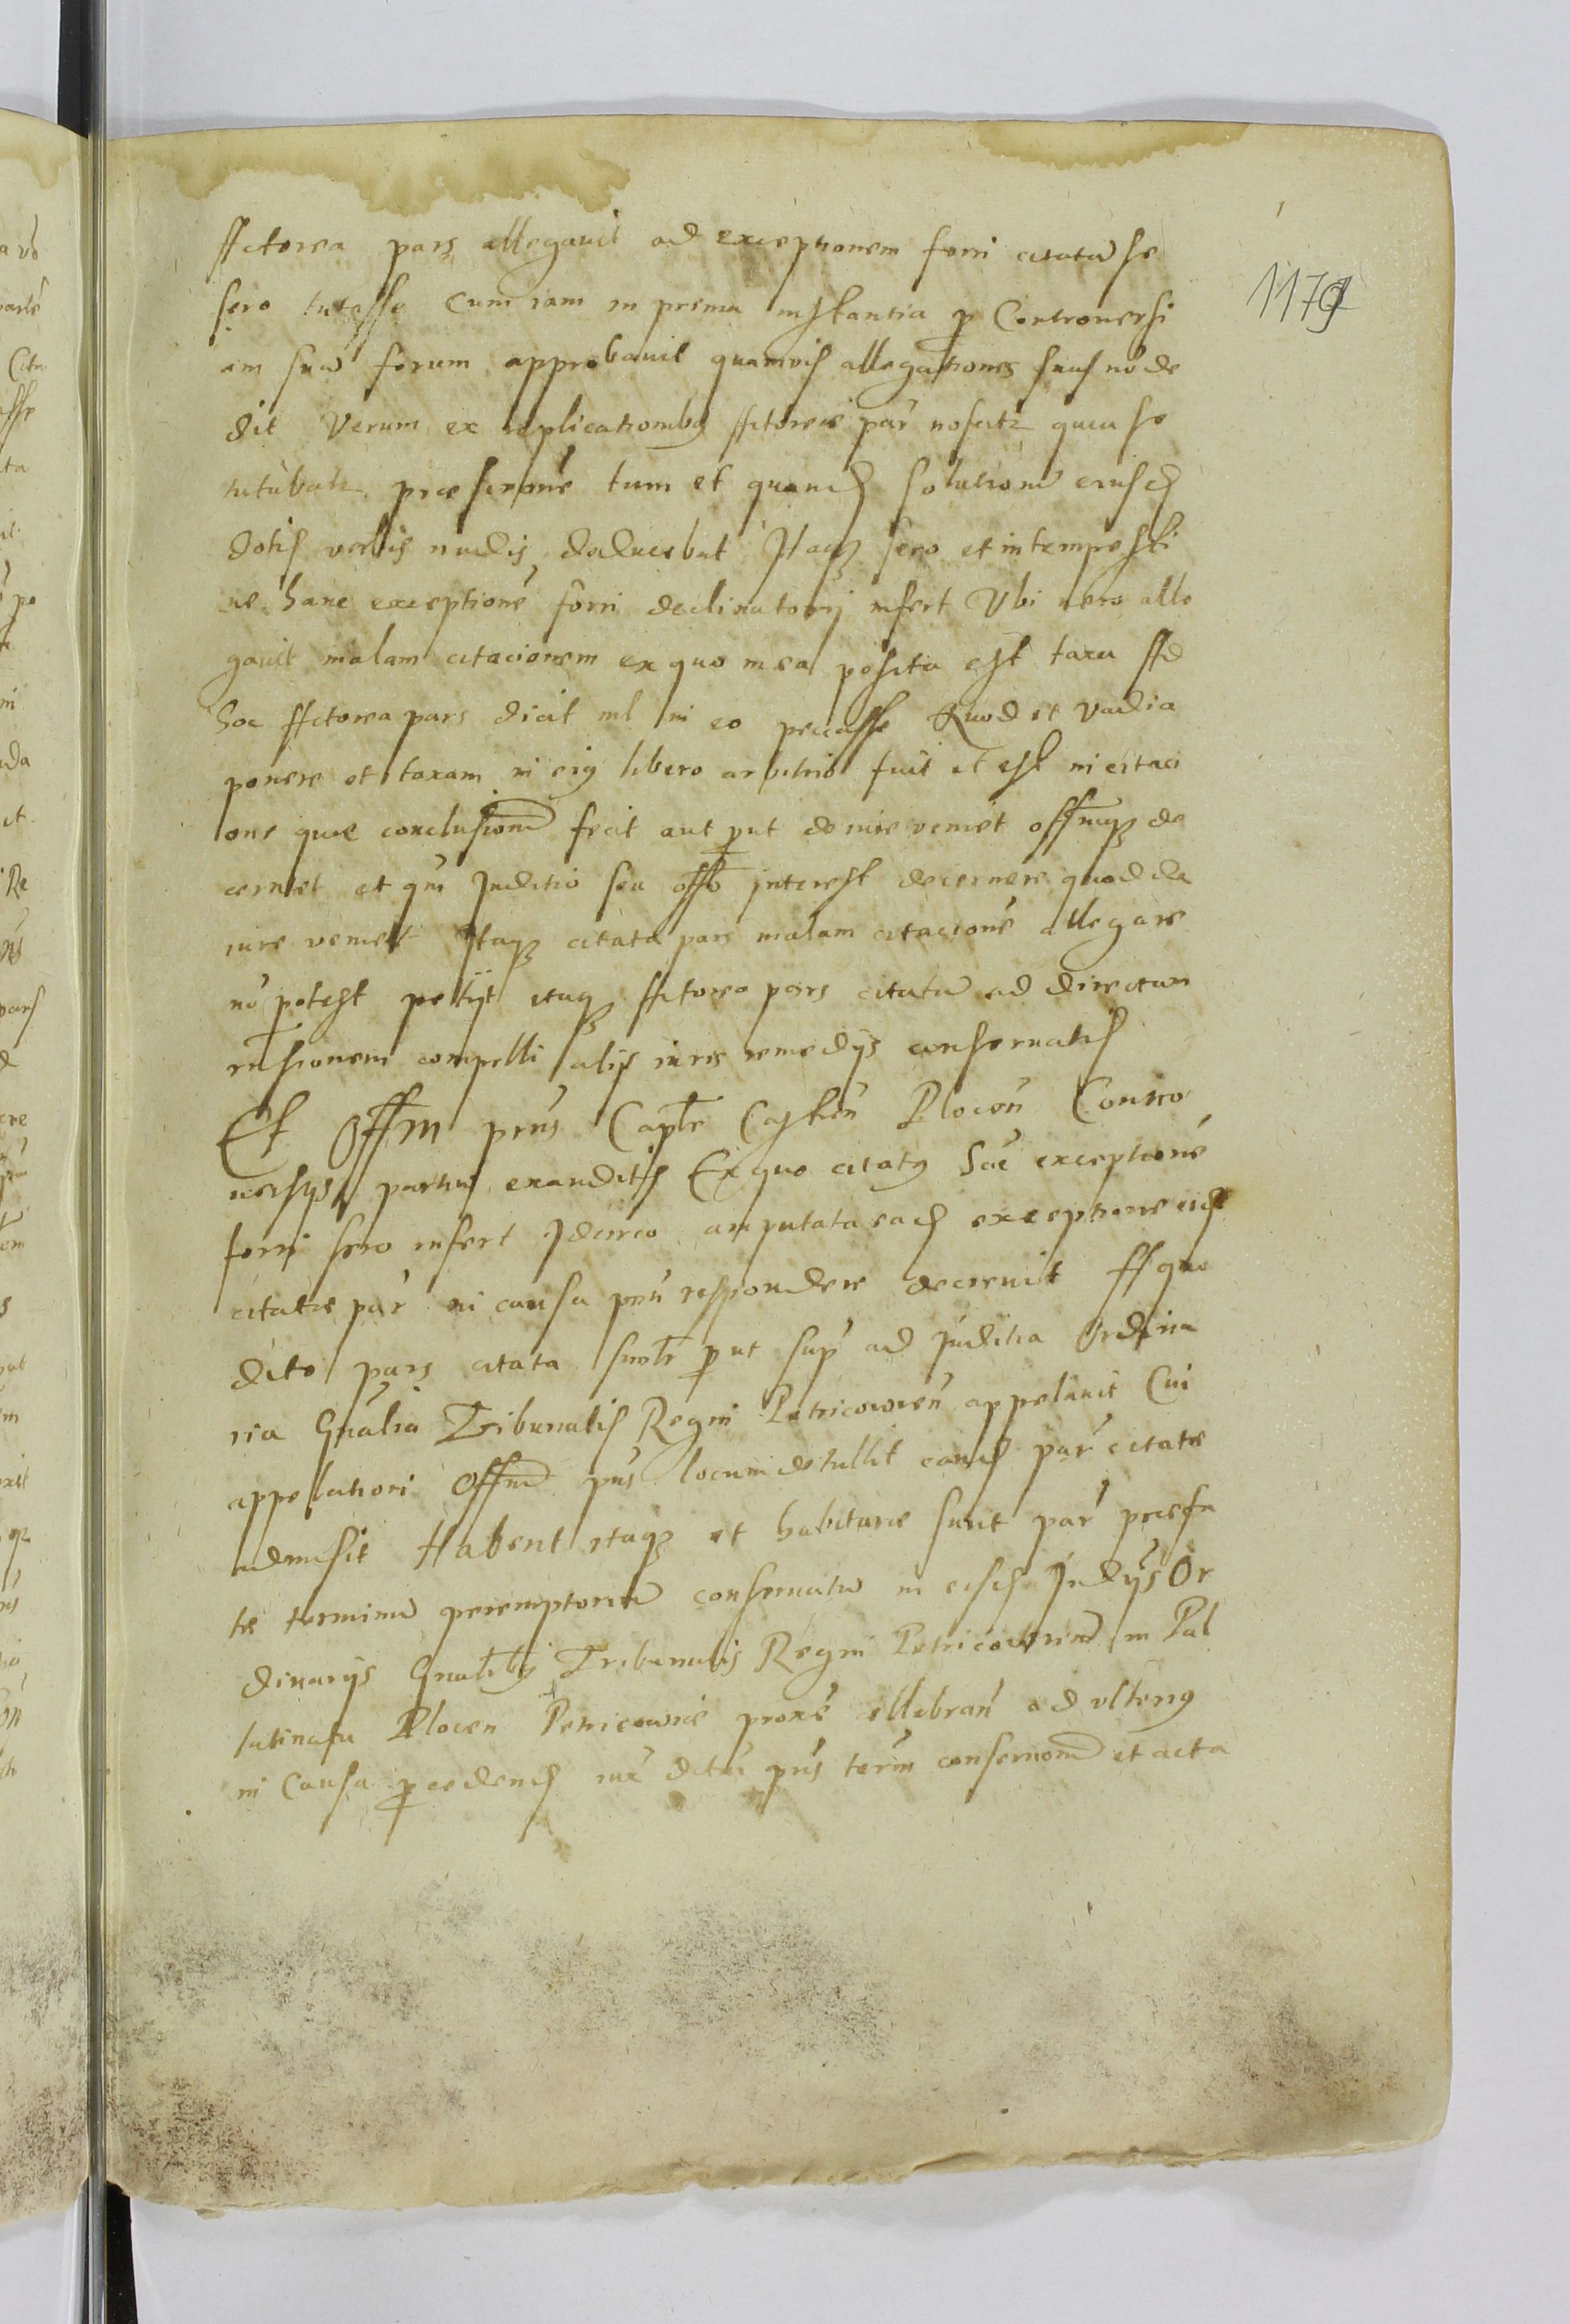 Actorea pars allegavit ad exceptionem fori citatã se
1179
sero intesse cum iam in prima instantia p Controversi
am suã forum approbavit quamvis allegationes suas nõ de
dit Verum ex replicationibus Actoreæ par noscitr quia se
titubatr tum et quand solutionẽ eiusd
dotis verbis nudis deducebat Itaq sero et intempesti
ve hanc exceptionẽ fori declinatorij infert Ubi vero alle
gavit malam citacionem ex quo in ea posita est taxa Ad
hoc Actorea pars dicit nil in eo peccasse Quod et vadia
ponere et taxam in eius libero arbitrio fuit et est in citaci
one quæ conclusionẽ fecit aut put de iure veniet offmq de
cernet et qm Juditio seu offo interest decernere quod de
iure veniet Itaq citata pars malam citacionẽ allegare
nõ potest petijt itaq Actorea pars citatã ad directam
rnsionem compelli alijs iuris remedijs conservatis
Et Offm pñs Capte Castrẽn Plocen Contro
versijs partiũ exauditis Ex quo citatus hãc exceptionẽ
fori sero infert Idcirco amputata ead exceptione eid
citatæ par in causa pñti respondere decrevit A quo
dcto pars citata put sup ad Juditia Ordina
ria Gnalia Tribunalis Regni Petricovien appelavit Cui
appelationi Offm pñs locum detullit eand par citatæ
admisit Habent itaq et habituræ sunt par præfa
tæ terminũ peremptoriũ conservatũ in eisd Judijs Or
dinarijs Gnalibus Tribunalis Regni Petricovien in Pal
latinatu Plocen Petricoviæ proxẽ cellebran ad ulterius
in Causa pcedend pñs term conservatioñ et acta